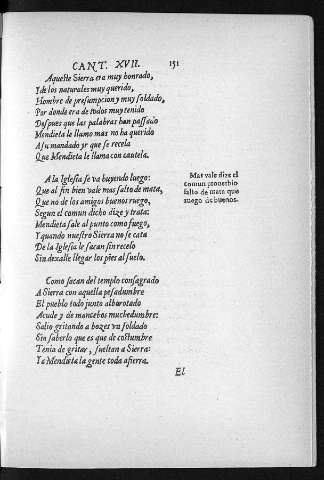 CANT. XVII. 151
Aqueste Sierra era muy honrado,
Y de los naturales muy querido,
Hombre de presumpcion y muy soldado,
Por donde era de todos muy tenido
Despues que las palabras han passado
Mendieta le llamo mas no ha querido
A su mandado yr que se recela
Que Mendieta le llama con cautela.
A la Iglesia se va huyendo luego:
Que al fin bien vale mas salto de mata,
Que no de los amigos buenos ruego,
Segun el comun dicho dize y trata:
Mendieta sale al punto como fuego,
Y quando nuestro Sierra no se cata
De la Iglesia le sacan sin recelo
Sin dexalle llegar los pies al suelo.
Mas vale dize el
comun prouerbio
salto de mata que
ruego de buenos.
Como sacan del templo consagrado
A Sierra con aquella pesadumbre
El pueblo todo junto alborotado
Acude y de mancebos muchedumbre:
Salio gritando a bozes vn soldado
Sin saberlo que es que de costumbre
Tenia de gritar, sueltan a Sierra:
Y a Mendieta la gente toda afierra.
El